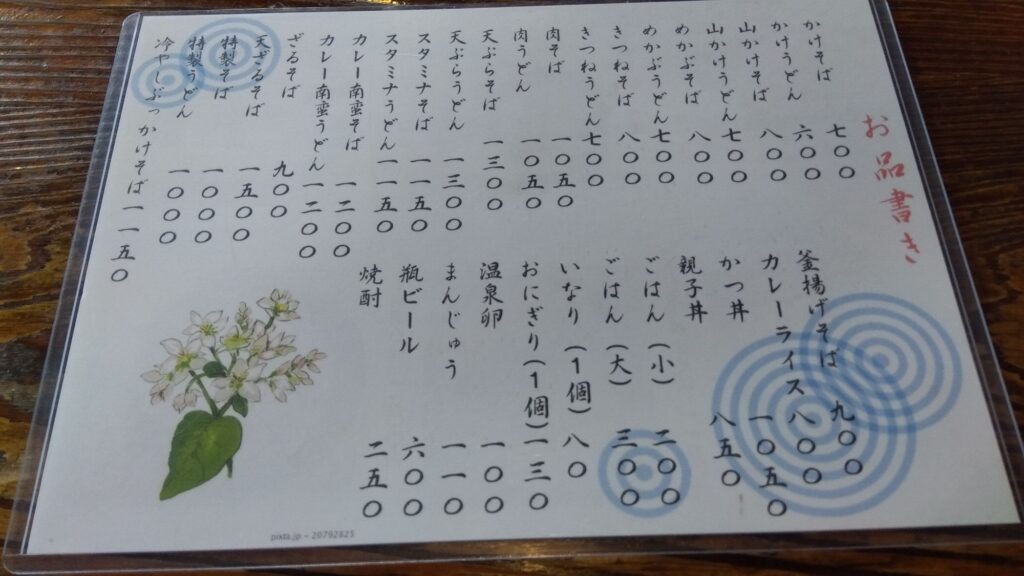 お品書き
かけそば 七〇〇
かけうどん 六〇〇
山かけそば 八〇〇
山かけうどん 七〇〇
めかぶそば 八〇〇
めかぶうどん 七〇〇
きつねそば 八〇〇
きつねうどん 七〇〇
肉そば 一〇五〇
肉うどん 一〇五〇
天ぷらそば 一三〇〇
天ぷらうどん 一三〇〇
スタミナそば 一一五〇
スタミナうどん 一一五〇
カレー南蛮そば 一二〇〇
カレー南蛮うどん 一二〇〇
ざるそば 九〇〇
天ざるそば 一五〇〇
特製そば 一〇〇〇
特製うどん 一〇〇〇
冷やしぶっかけそば 一一五〇
釜揚げそば 九〇〇
カレーライス 八〇〇
かつ丼 一〇五〇
親子丼 八五〇
ごはん（小） 二〇〇
ごはん（大） 三〇〇
いなり（1個） 八〇
おにぎり（1個） 一三〇
温泉卵 一〇〇
まんじゅう 一一〇
瓶ビール 六〇〇
焼酎 二五〇
pixta.jp - 20792825